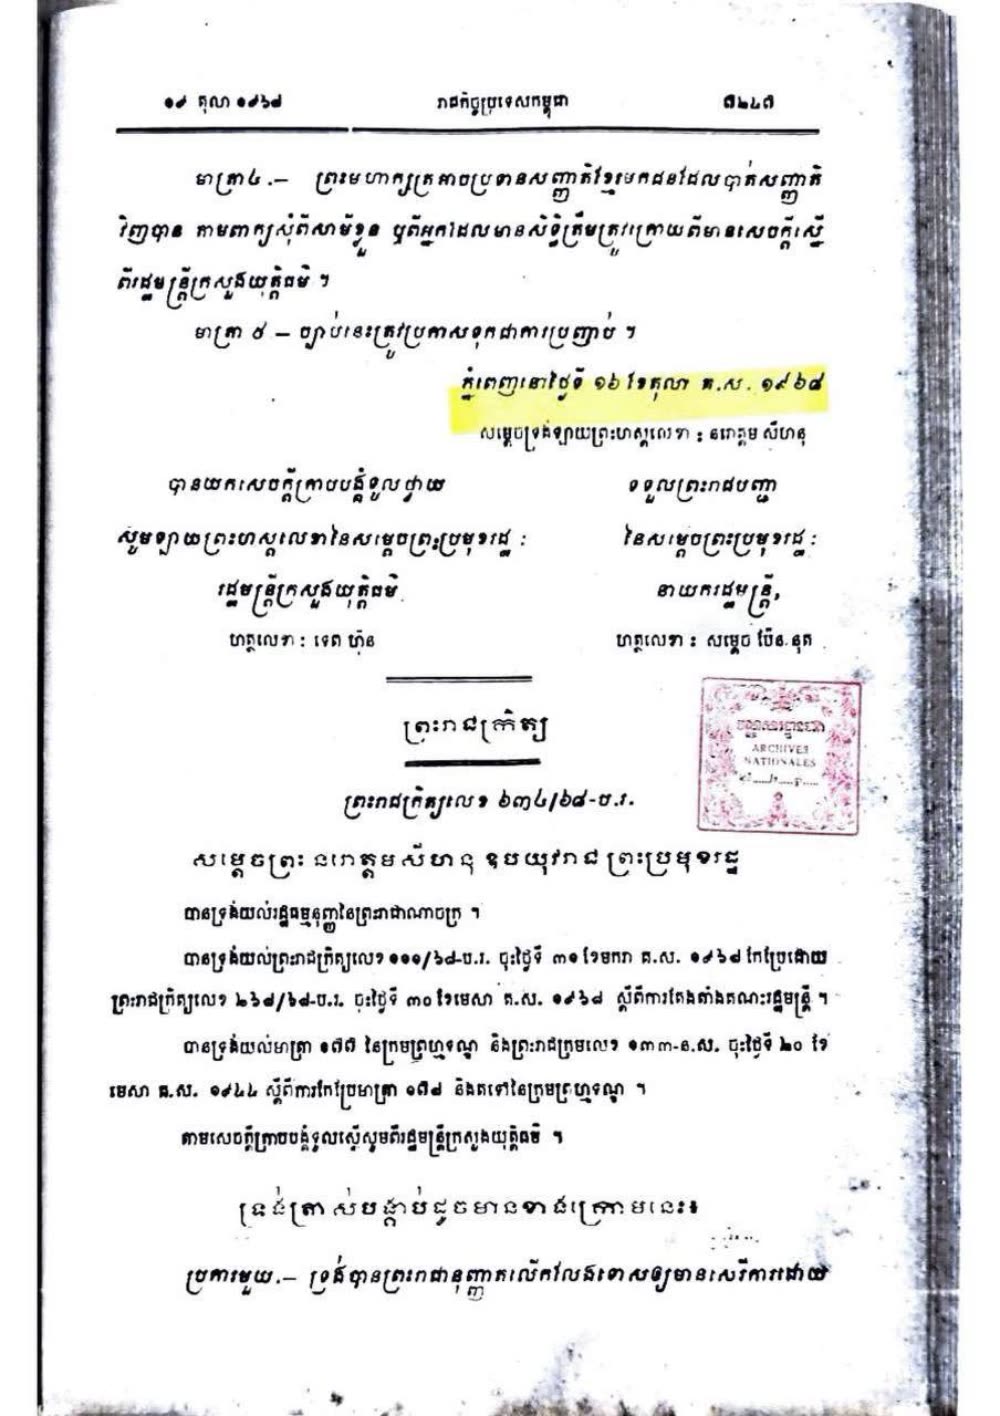 ១៩ តុលា ១៩៦៨ រាជកិច្ចប្រទេសកម្ពុជា ៧២៤៧
មាត្រា៤.— ព្រះមហាក្សត្រអាចប្រទានសញ្ជាតិខ្មែរមកជនដែលបាត់សញ្ជាតិ
វិញបាន តាមពាក្យសុំពីសាមីខ្លួន ឬពីអ្នកដែលមានសិទ្ធិត្រឹមត្រូវក្រោយពីមានសេចក្ដីស្នើ
ពីរដ្ឋមន្ត្រីក្រសួងយុត្តិធម៌ ។
មាត្រា ៥ — ច្បាប់នេះត្រូវប្រកាសទុកជាការប្រញាប់ ។
ភ្នំពេញនៅថ្ងៃទី ១៦ ខែតុលា គ.ស. ១៩៦៨
សម្ដេចទ្រង់ឡាយព្រះហស្ដលេខា : នរោត្តម សីហនុ
បានយកសេចក្ដីក្រាបបង្គំទូលថ្វាយ ទទួលព្រះរាជបញ្ជា
សូមឡាយព្រះហស្ដលេខានៃសម្ដេចព្រះប្រមុខរដ្ឋ : នៃសម្ដេចព្រះប្រមុខរដ្ឋ :
រដ្ឋមន្ត្រីក្រសួងយុត្តិធម៌ នាយករដ្ឋមន្ត្រី,
ហត្ថលេខា : ទេព ហ៊ុន ហត្ថលេខា : សម្ដេច ប៉ែន.នុត
ព្រះរាជក្រិត្យ
ARCHIVES
NATIONALES
ព្រះរាជក្រិត្យលេខ ៦៣៤/៦៨-ប.រ.
សម្ដេចព្រះ នរោត្តមសីហនុ ឧបយុវរាជ ព្រះប្រមុខរដ្ឋ
បានទ្រង់យល់រដ្ឋធម្មនុញ្ញនៃព្រះរាជាណាចក្រ ។
បានទ្រង់យល់ព្រះរាជក្រិត្យលេខ ១១១/៦៨-ប.រ. ចុះថ្ងៃទី ៣១ ខែមករា គ.ស. ១៩៦៨ កែប្រែដោយ
ព្រះរាជក្រិត្យលេខ ២៦៨/៦៨-ប.រ. ចុះថ្ងៃទី ៣០ ខែមេសា គ.ស. ១៩៦៨ ស្ដីពីការតែងតាំងគណះរដ្ឋមន្ត្រី ។
បានទ្រង់យល់មាត្រា ១៧៧ នៃក្រមព្រហ្មទណ្ឌ និងព្រះរាជក្រមលេខ ១៣៣-ន.ស. ចុះថ្ងៃទី ២០ ខែ
មេសា គ.ស. ១៩៤៤ ស្ដីពីការកែប្រែមាត្រា ១៧៨ និងតទៅនៃក្រមព្រហ្មទណ្ឌ ។
តាមសេចក្ដីក្រាបបង្គំទូលស្នើសូមពីរដ្ឋមន្ត្រីក្រសួងយុត្តិធម៌ ។
ទ្រង់ត្រាស់បង្គាប់ដូចមានខាងក្រោមនេះ៖
ប្រការមួយ.— ទ្រង់បានព្រះរាជានុញ្ញាតលើកលែងទោសឲ្យមានសេរីការដោយ